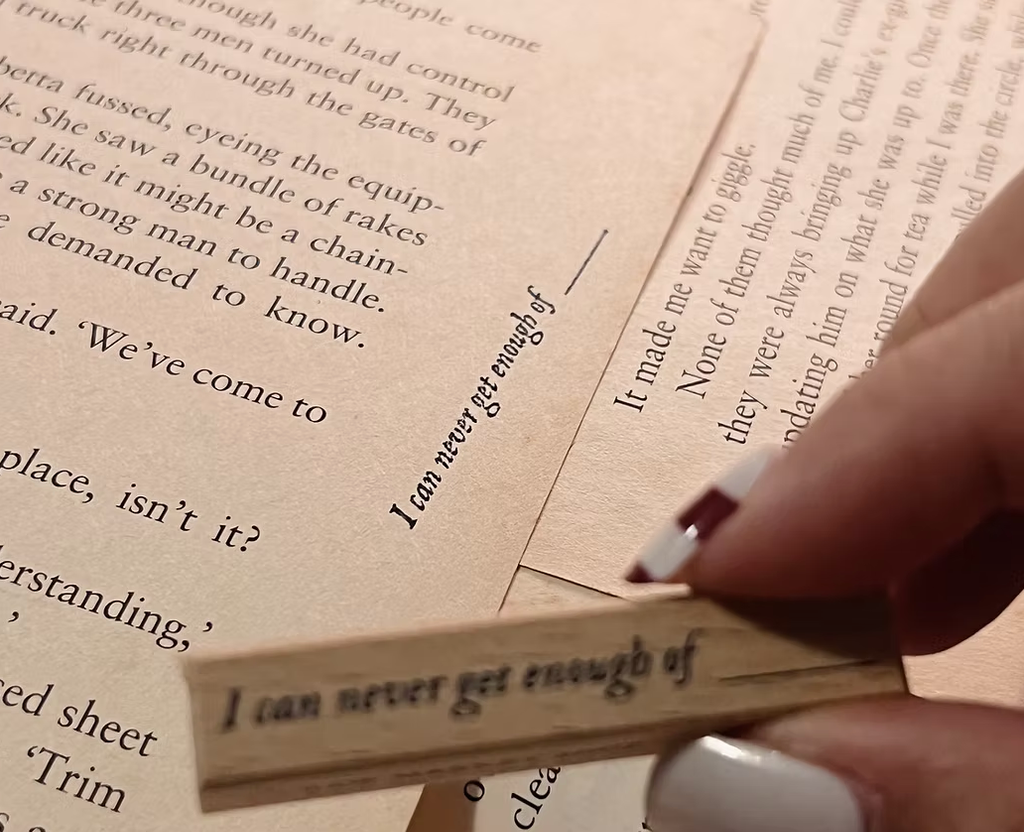 people come
though she had control
three men turned up. They
truck right through the gates of
betta fussed, eyeing the equip-
k. She saw a bundle of rakes
ed like it might be a chain-
a strong man to handle.
demanded to know.
aid. ‘We’ve come to
place, isn’t it?
erstanding,’
’
ced sheet
‘Trim
I can never get enough of ___
It made me want to giggle.
None of them thought much of me. I coul
they were always bringing up Charlie’s ex-gi
pdating him on what she was up to. Once the
her round for tea while I was there. She
lled into the circle, whi
I can never get enough of ___
o
clea